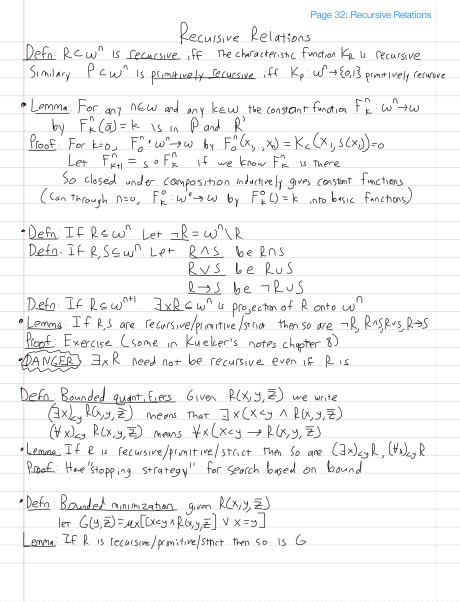 Page 32: Recursive Relations
Recursive Relations
Defn: R⊂ωⁿ is recursive iff The characteristic function K_R is recursive
Similary P⊂ωⁿ is primitively recursive iff K_P: ωⁿ→{0,1} primitively recursive
• Lemma: For any n∈ω and any k∈ω the constant function F_k^n: ωⁿ→ω
by F_k^n(ā)=k is in P and R'
Proof: For k=0, F_0^n: ωⁿ→ω by F_0^n(x₁,..,xₙ) = K_<(x₁,s(x₁))=0
Let F_{k+1}^n = s∘F_k^n if we know F_k^n is there
So closed under composition inductively gives constant functions
(Can through n=0, F_k^0: ω⁰→ω by F_k^0()=k into basic functions)
• Defn: If R≤ωⁿ Let ¬R = ωⁿ\R
Defn: If R,S≤ωⁿ. Let R∧S be R∩S
R∨S be R∪S
R→S be ¬R∪S
Defn: If R≤ωⁿ⁺¹. ∃xR≤ωⁿ is projection of R onto ωⁿ
• Lemma: If R,S are recursive/primitive/strict then so are ¬R, R∧S, R∨S, R→S
Proof: Exercise (some in Kueker's notes chapter 8)
• DANGER: ∃xR need not be recursive even if R is
Defn: Bounded quantifiers Given R(x,y,z̄) we write
(∃x)_{<y} R(x,y,z̄) means that ∃x(x<y ∧ R(x,y,z̄)
(∀x)_{<y} R(x,y,z̄) means ∀x(x<y → R(x,y,z̄)
• Lemma: If R is recursive/primitive/strict then so are (∃x)_{<y}R, (∀x)_{<y}R
Proof: Have "stopping strategy" for search based on bound
• Defn: Bounded minimization given R(x,y,z̄)
let G(y,z̄)=μx[[x<y∧R(x,y,z̄] ∨ x=y]
Lemma: If R is recursive/primitive/strict then so is G